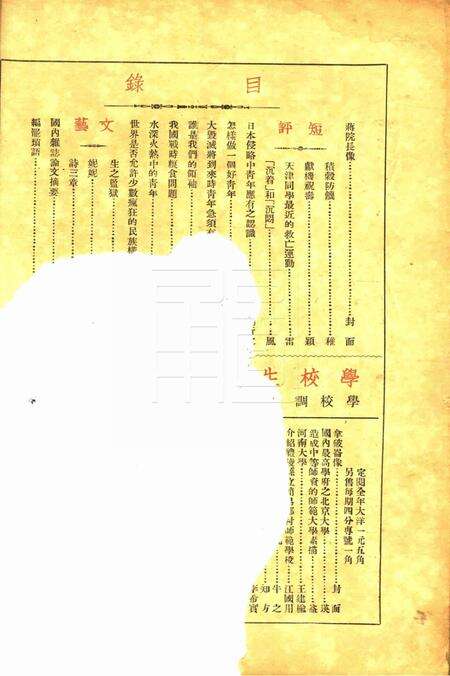 目錄
蔣院長像……封面
短評
積穀防饑……稚
獻機祝壽……穎
天津同學最近的救亡運動……雷
「沉着」和「沉悶」……風
日本侵略中青年應有之認識
怎樣做一個好青年
大毀滅將到來時青年急須
誰是我們的領袖
我國戰時糧食問題
水深火熱中的青年
世界是否允許少數瘋狂的民族
文藝
生之監獄
妮妮
詩三章
國內雜誌論文摘要
編罷瑣語
學校生
學校調
定閱全年大洋一元五角
另售每期四分專號一角
拿破崙像……封面
國內最高學府之北京大學……瑛
造成中等師資的師範大學素描……盛
河南大學……王建楡
江國用
牛之
知方